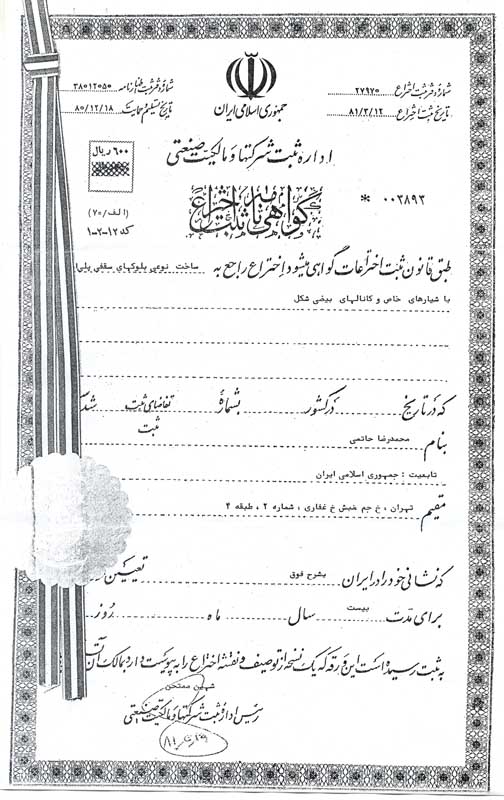 شماره ثبت اختراع ۲۷۹۷۰
تاریخ ثبت اختراع ۸۱/۳/۱۲
جمهوری اسلامی ایران
شماره ثبت اظهارنامه ۳۸۰۱۲۰۵۰
تاریخ تسلیم و حمایت ۸۰/۱۲/۱۸
اداره ثبت شرکتها و مالکیت صنعتی
۶۰۰ ریال
گواهی نامه ثبت اختراع
* ۰۰۳۸۹۳
(الف/۷۰)
کد ۱۲-۲-۱
طبق قانون ثبت اختراعات گواهی میشود اختراع راجع به ساخت نوعی بلوکهای سقفی پلی
با شیارهای خاص و کانالهای بیضی شکل
که در تاریخ در کشور بشماره تقاضای ثبت شد
ثبت
بنام محمدرضا حاتمی
تابعیت : جمهوری اسلامی ایران
مقیم تهران ، خ جم خبش خ غفاری ، شماره ۲ ، طبقه ۴
که نشانی خود را در ایران بشرح فوق تعیین
برای مدت بیست سال ماه روز
به ثبت رسیده است این ورقه که یک نسخه از توصیف و نقشه اختراع را به پیوست دارد بمالک آن
شهین ممتحن
رئیس اداره ثبت شرکتها و مالکیت صنعتی